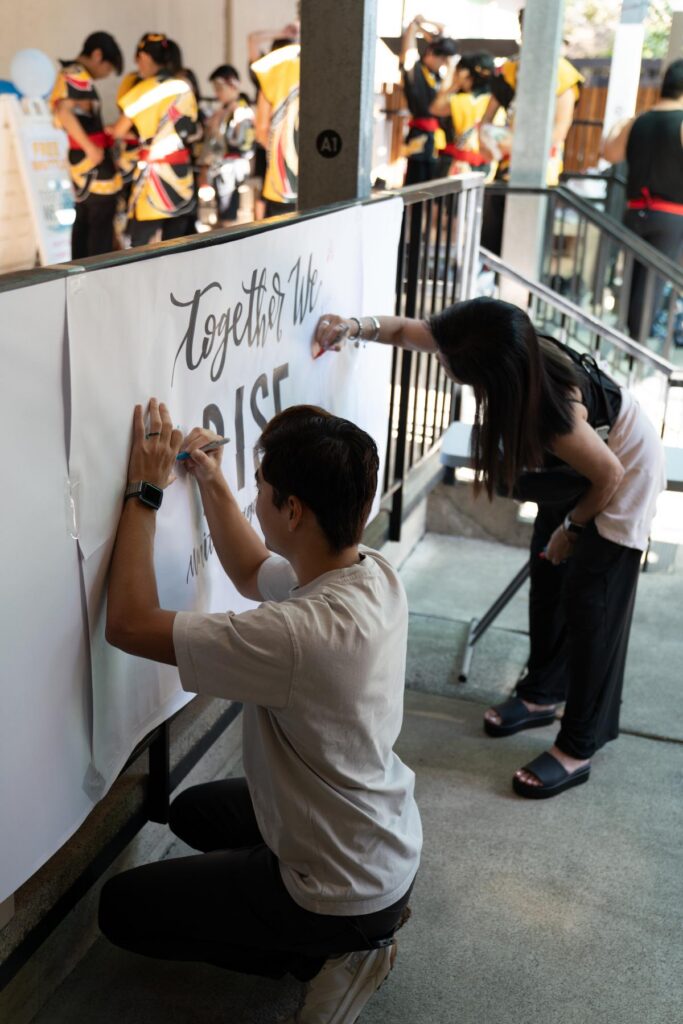 Together We
RISE
A1
FREE